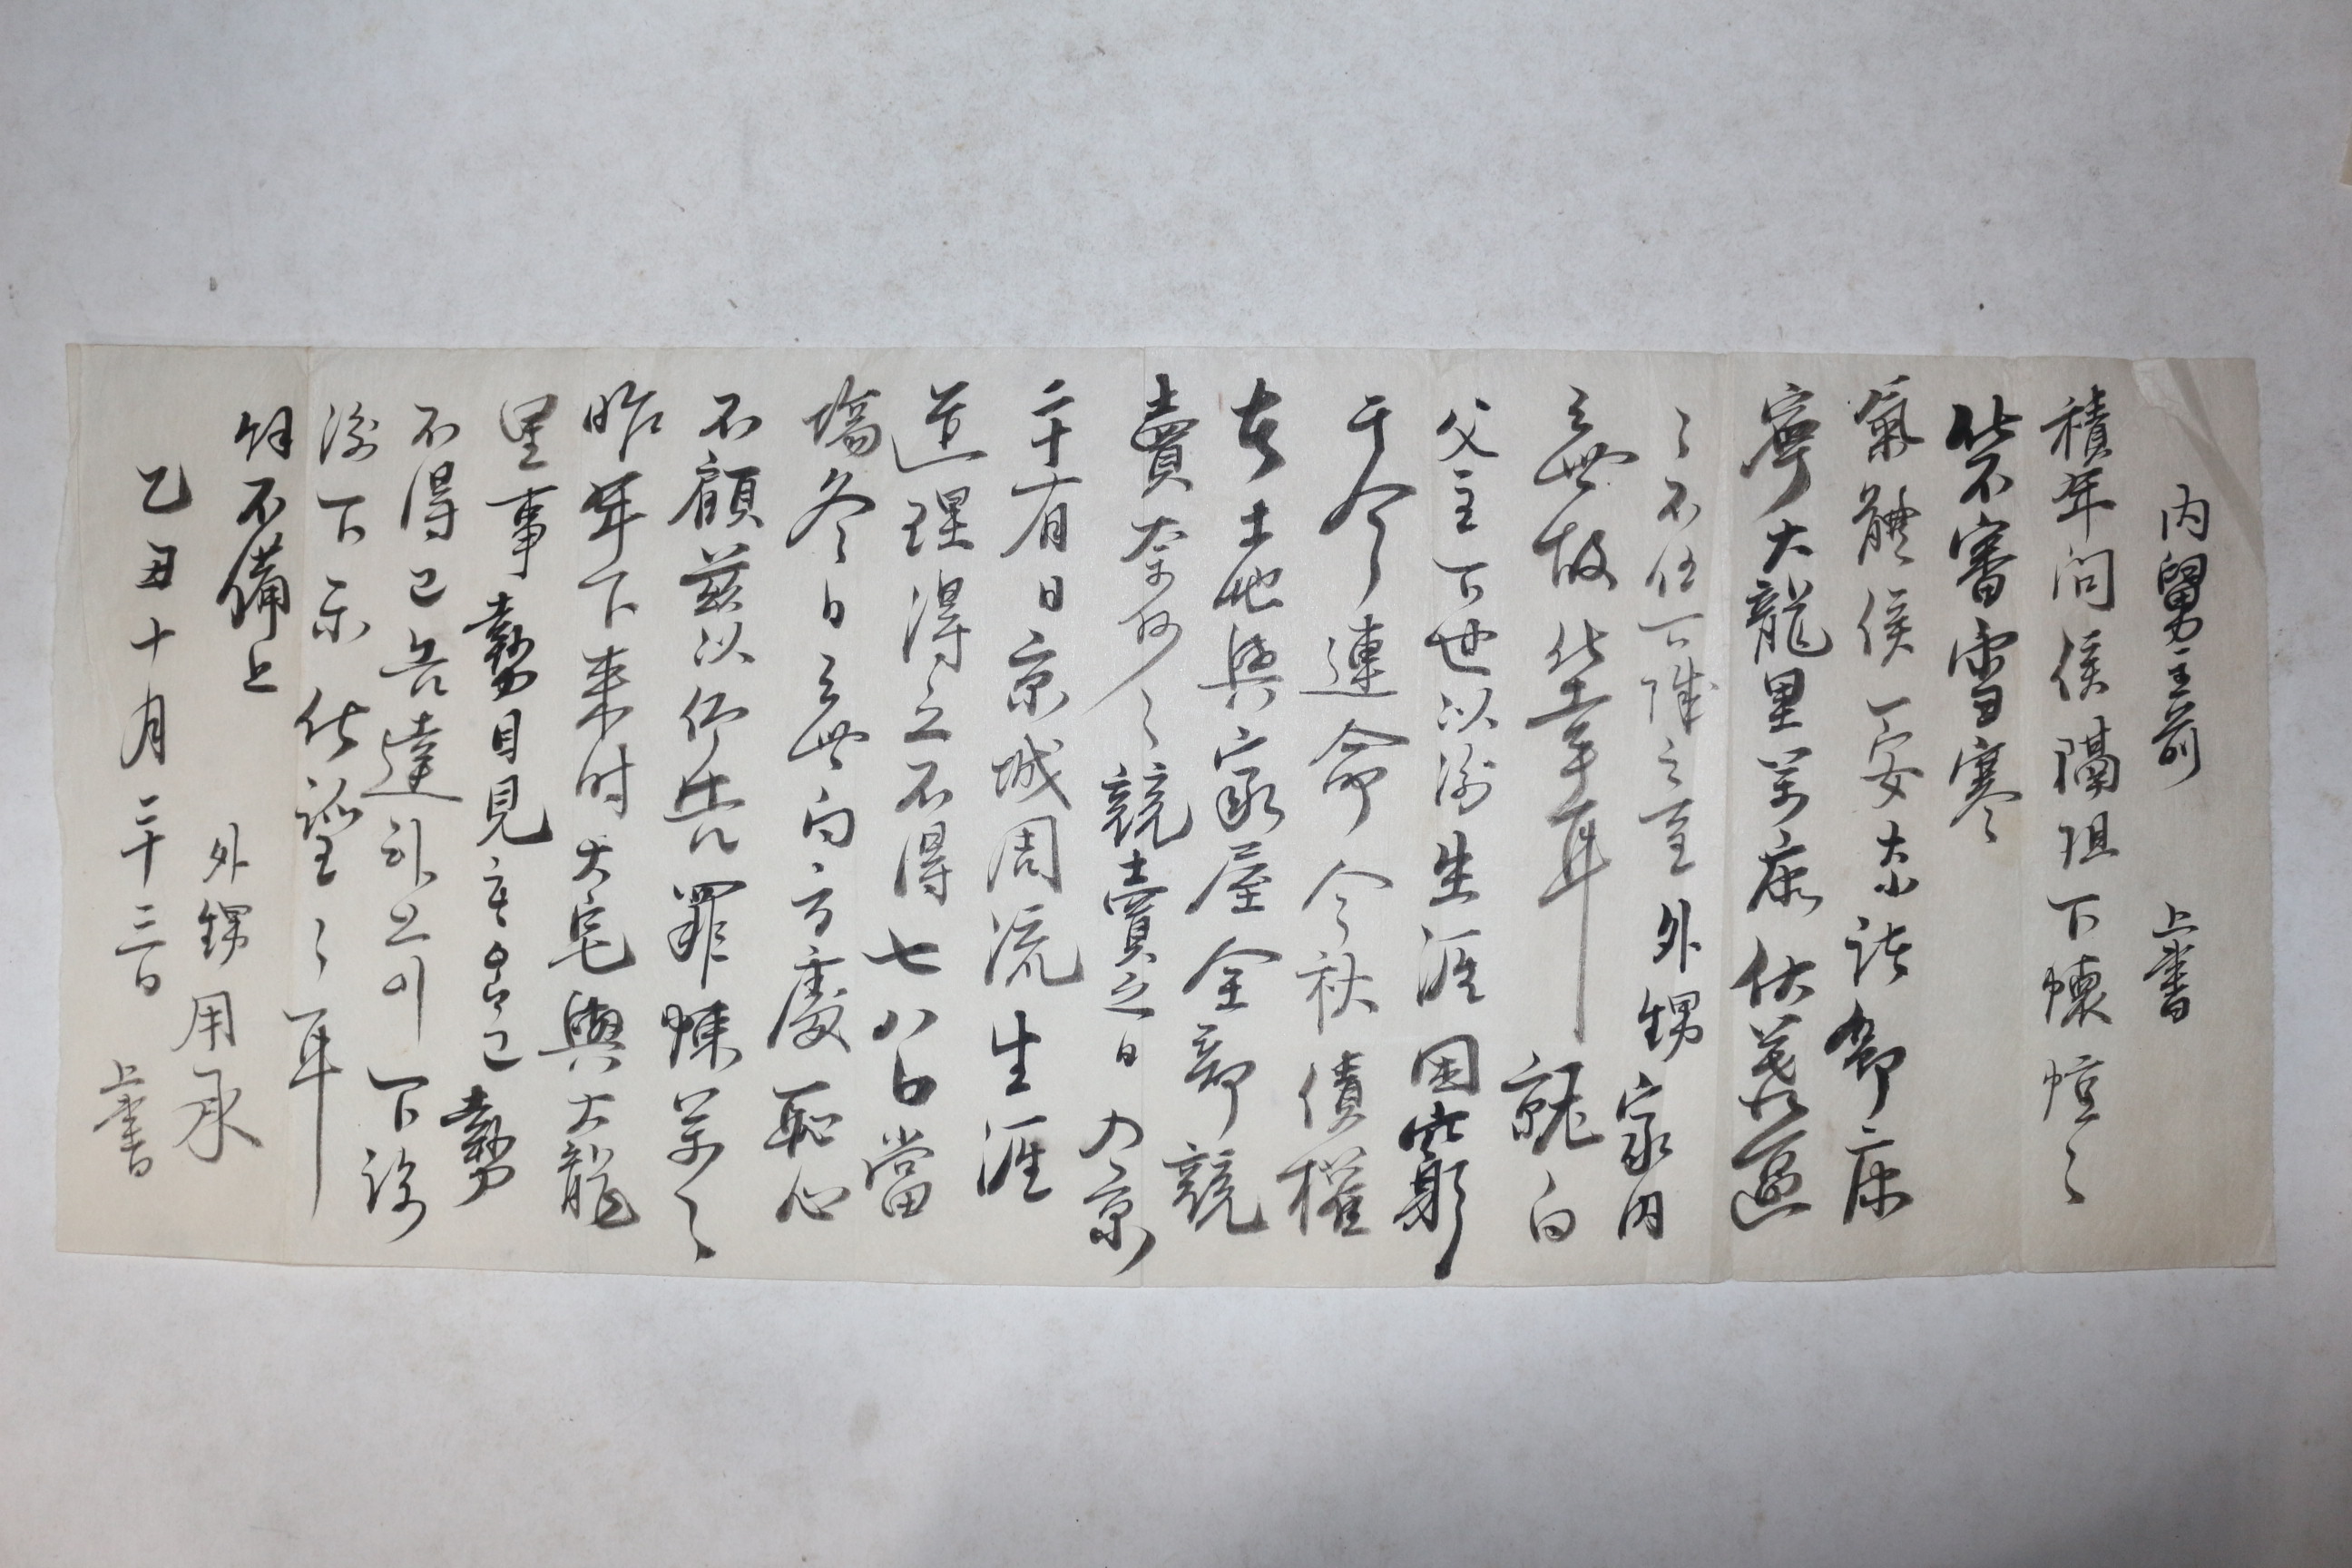 內舅主前 上書
積年問候隔阻下懷憧〻
伏不審雪寒
氣體候一安大小諸節康
寧大龍里萬康伏慕區
〻不任下誠之至外甥家內
無故伏幸耳 就白
父主下世以後生涯困窮
于今連命今秋債權
土地與家屋全部競
賣奈何〻競賣之日
二十有日京城周流生涯
道理得之不得七八日當
場冬日無向方處恥心
不顧茲以仰告罪悚萬〻
昨年下來時大宅與大龍
里事勢目見 勢
不得已告達 下諒
後下示伏望〻耳
餘不備上
外甥 用承
乙丑十月二十三日 上書